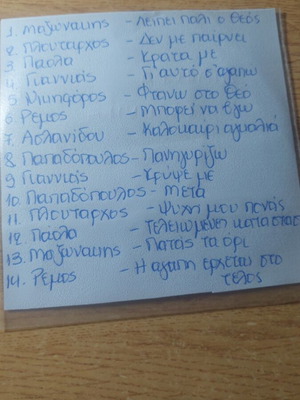 1. Μαζωνακης - Λείπει πάλι ο θεός
2. Πλουταρχος - Δεν με παίρνει
3 Παολα - Κρατα με
4 Γιαννιάς - Γι αυτό σ'αγαπω
5 Νικηφόρος - Φτανω στο θεό
6 Ρέμος - Μπορεί να βγω
7. Ασλανίδου - Καλοκαιρι αγκαλιά
8 Παπαδόπουλος - Πανηγυρίζω
9 Γιαννιας - Κρύψε με
10. Παπαδόπουλος - Μετά
11. Πλουταρχος - Ψυχή μου πονάς
12. Παολα - Τελειωμένη κατασταση
13. Μαζωνακης - Πατάς τα όρι
14. Ρέμος - Η αγαπη ερχεται στο
τέλος